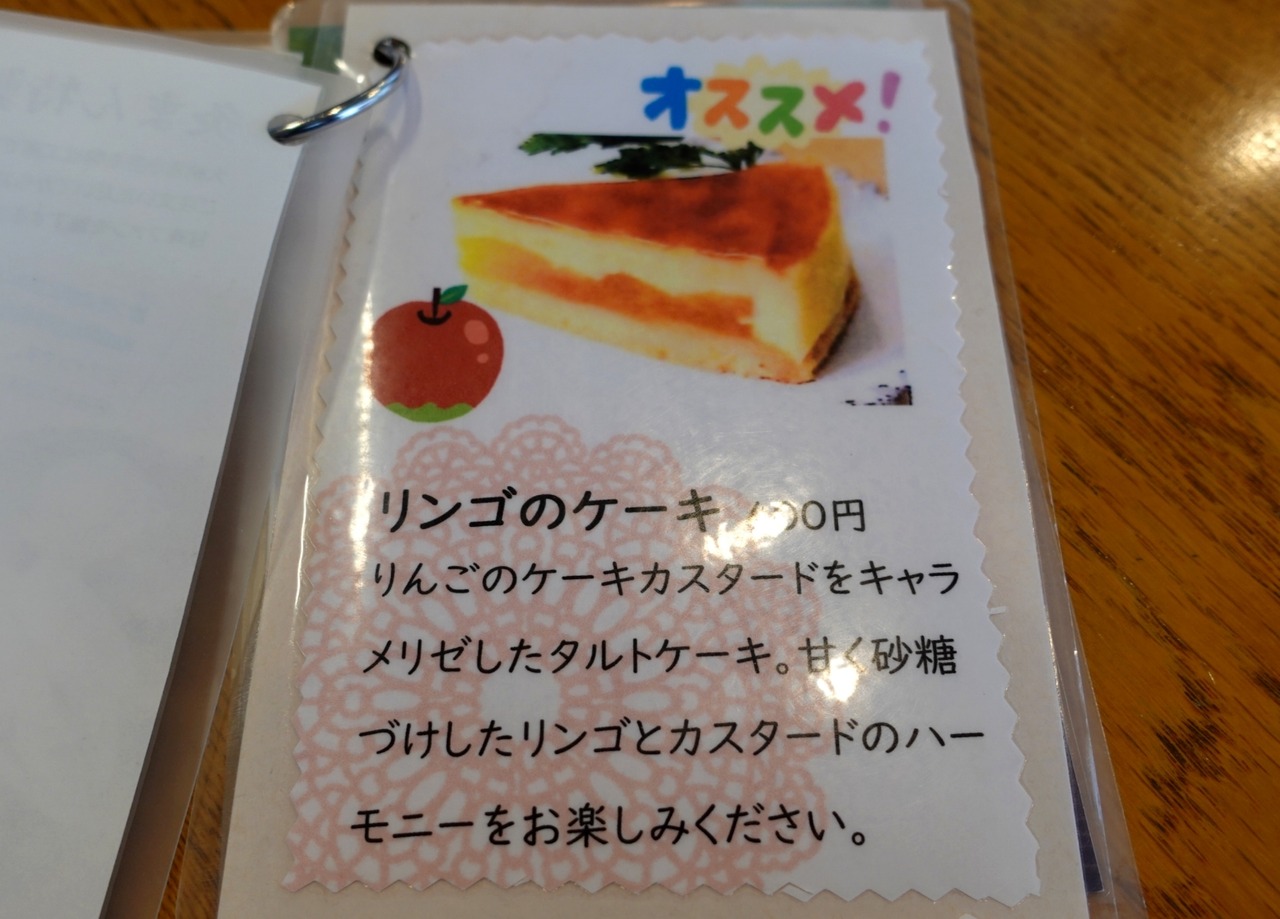 オススメ!
リンゴのケーキ
りんごのケーキカスタードをキャラ
メリゼしたタルトケーキ。甘く砂糖
づけしたリンゴとカスタードのハー
モニーをお楽しみください。